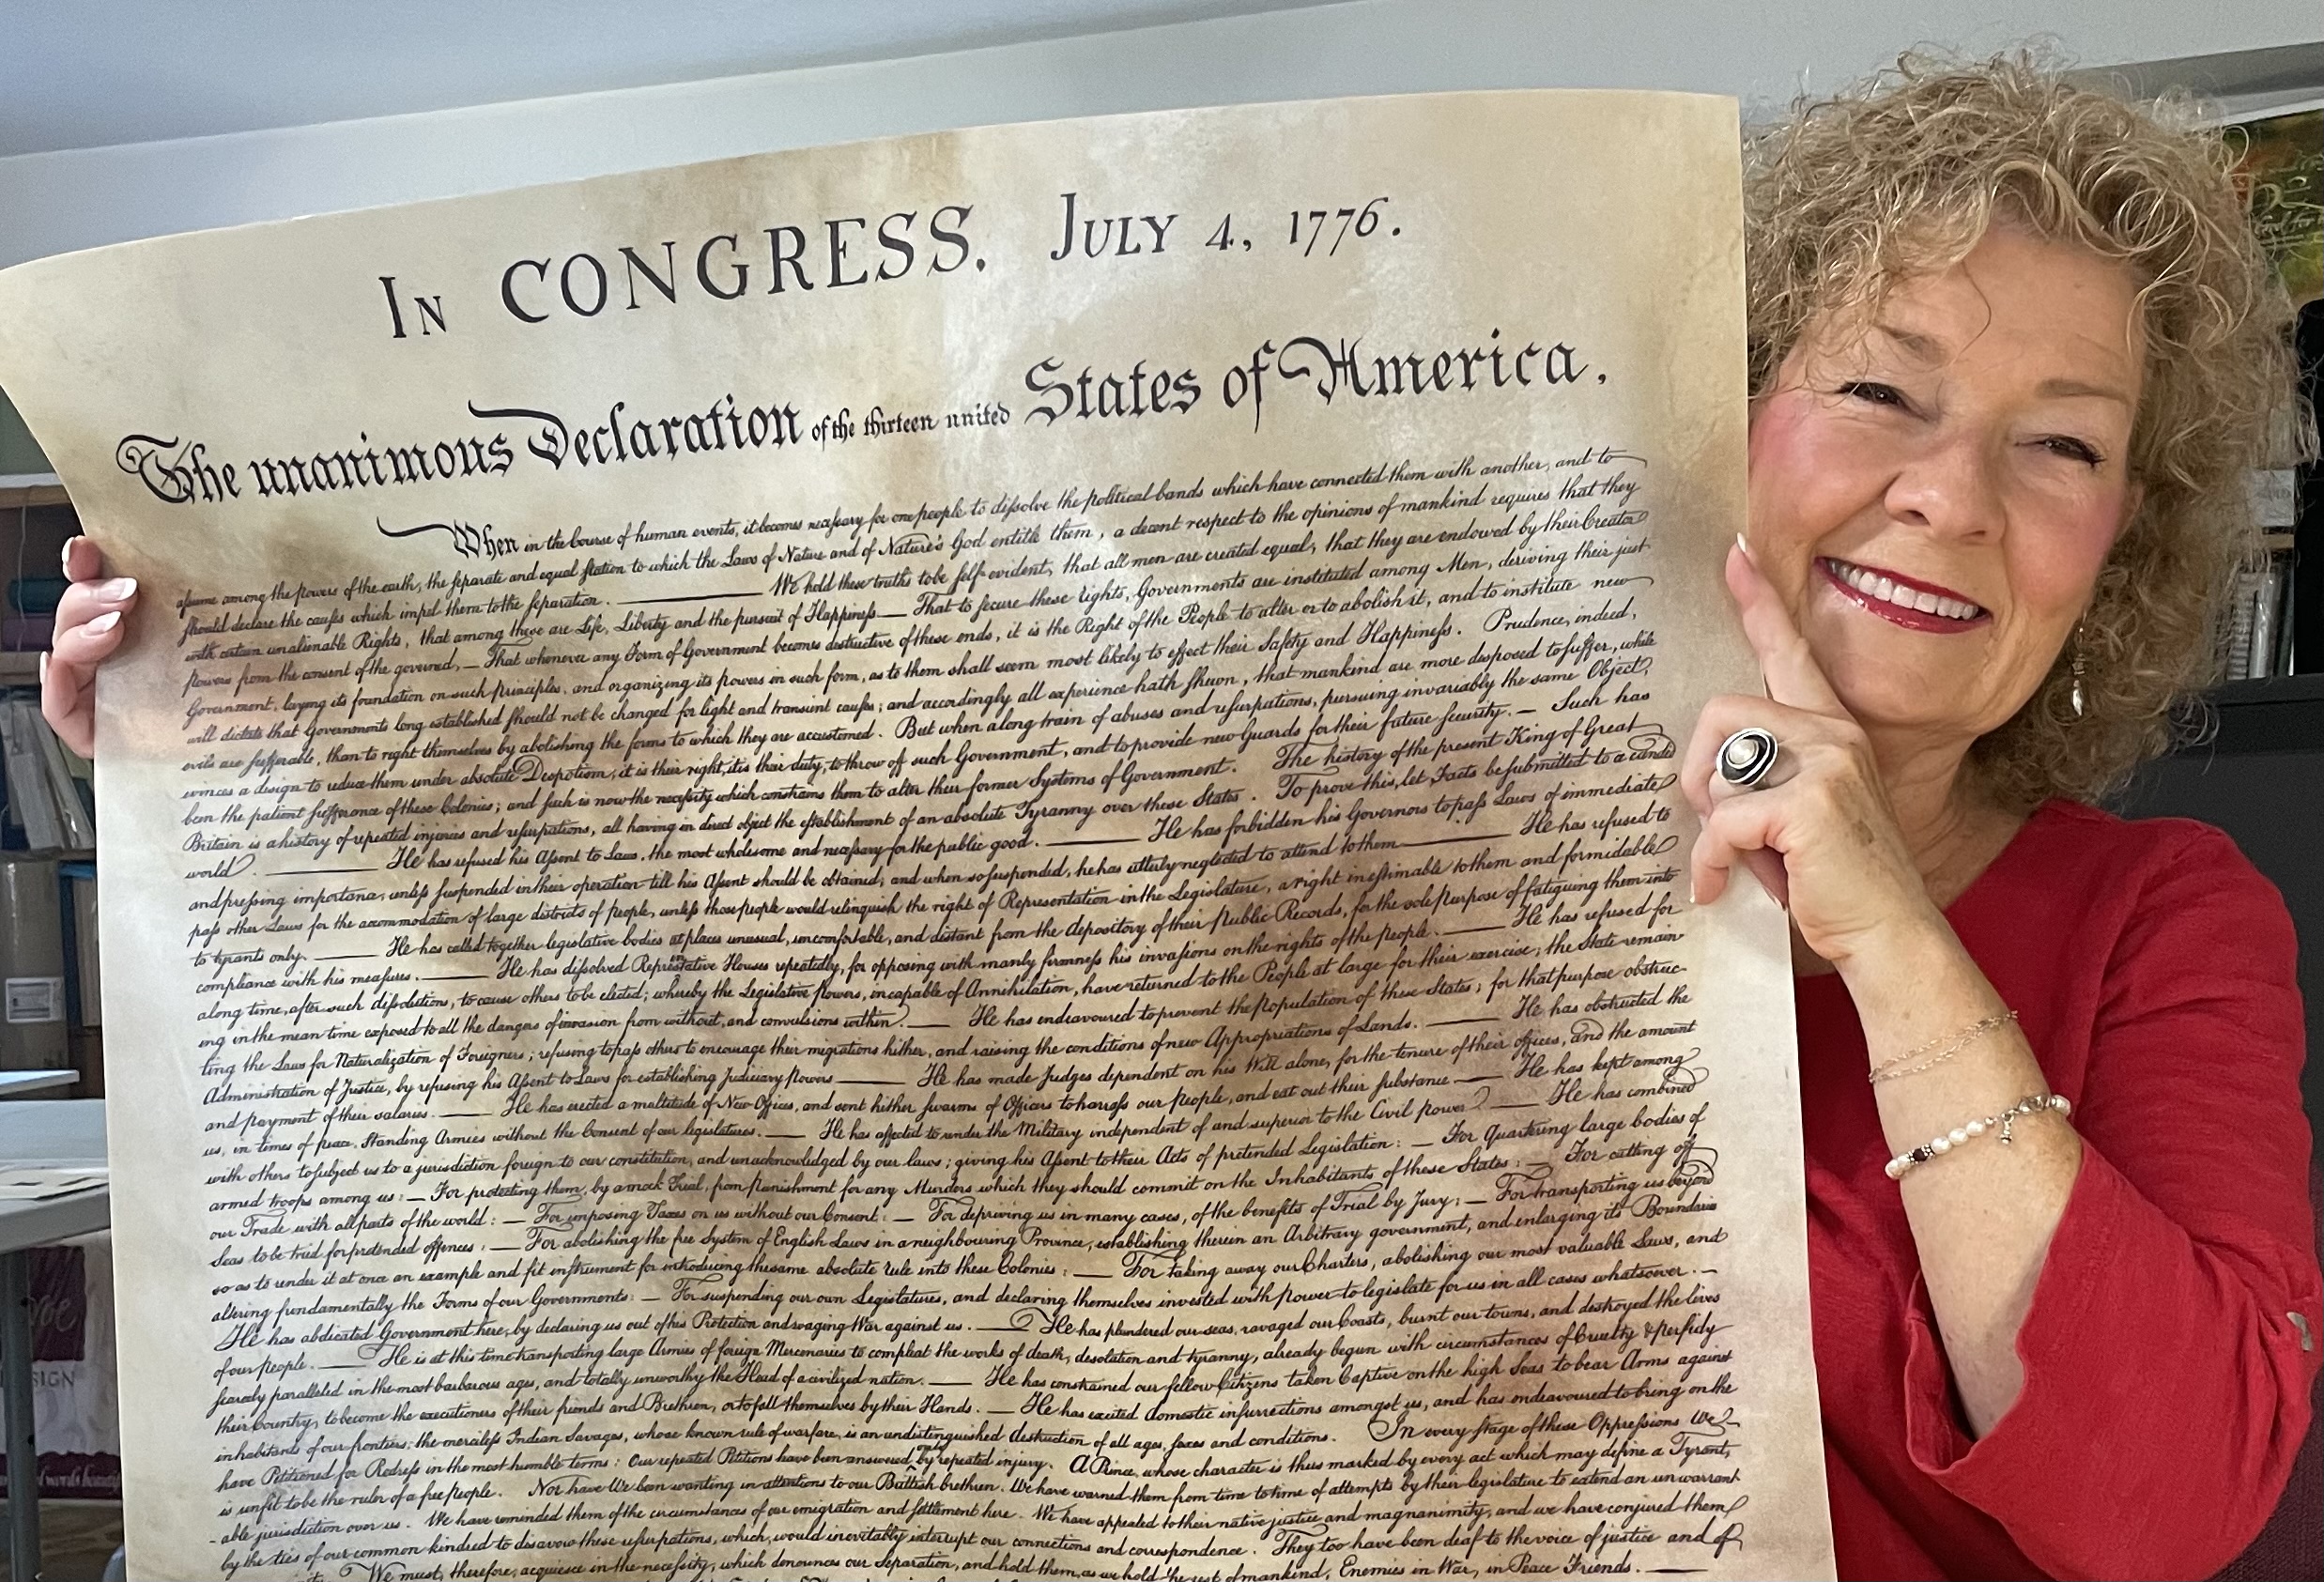 In CONGRESS. July 4, 1776.
The unanimous Declaration of the thirteen united States of America.
When in the Course of human events, it becomes necessary for one people to dissolve the political bands which have connected them with another, and to
assume among the powers of the earth, the separate and equal station to which the Laws of Nature and of Nature's God entitle them, a decent respect to the opinions of mankind requires that they
should declare the causes which impel them to the separation. — We hold these truths to be self-evident, that all men are created equal, that they are endowed by their Creator
with certain unalienable Rights, that among these are Life, Liberty and the pursuit of Happiness — That to secure these rights, Governments are instituted among Men, deriving their just
powers from the consent of the governed, — That whenever any Form of Government becomes destructive of these ends, it is the Right of the People to alter or to abolish it, and to institute new
Government, laying its foundation on such principles, and organizing its powers in such form, as to them shall seem most likely to effect their Safety and Happiness. Prudence, indeed,
will dictate that Governments long established should not be changed for light and transient causes; and accordingly all experience hath shewn, that mankind are more disposed to suffer, while
evils are sufferable, than to right themselves by abolishing the forms to which they are accustomed. But when a long train of abuses and usurpations, pursuing invariably the same Object,
evinces a design to reduce them under absolute Despotism, it is their right, it is their duty, to throw off such Government, and to provide new Guards for their future security. — Such has
been the patient sufferance of these Colonies; and such is now the necessity which constrains them to alter their former Systems of Government. The history of the present King of Great
Britain is a history of repeated injuries and usurpations, all having in direct object the establishment of an absolute Tyranny over these States. To prove this, let Facts be submitted to a candid
world. — He has refused his Assent to Laws, the most wholesome and necessary for the public good. — He has forbidden his Governors to pass Laws of immediate
and pressing importance, unless suspended in their operation till his Assent should be obtained; and when so suspended, he has utterly neglected to attend to them — He has refused to
pass other Laws for the accommodation of large districts of people, unless those people would relinquish the right of Representation in the Legislature, a right inestimable to them and formidable
to tyrants only. — He has called together legislative bodies at places unusual, uncomfortable, and distant from the depository of their Public Records, for the sole purpose of fatiguing them into
compliance with his measures. — He has dissolved Representative Houses repeatedly, for opposing with manly firmness his invasions on the rights of the people. — He has refused for
a long time, after such dissolutions, to cause others to be elected; whereby the Legislative Powers, incapable of Annihilation, have returned to the People at large for their exercise; the State remain-
ing in the mean time exposed to all the dangers of invasion from without, and convulsions within. — He has endeavoured to prevent the Population of these States; for that purpose obstruc-
ting the Laws for Naturalization of Foreigners; refusing to pass others to encourage their migrations hither, and raising the conditions of new Appropriations of Lands. — He has obstructed the
Administration of Justice, by refusing his Assent to Laws for establishing Judiciary Powers — He has made Judges dependent on his Will alone, for the tenure of their offices, and the amount
and payment of their salaries. — He has erected a multitude of New Offices, and sent hither swarms of Officers to harrass our People, and eat out their substance — He has kept among
us, in times of peace, Standing Armies without the Consent of our legislatures. — He has affected to render the Military independent of and superior to the Civil Power — He has combined
with others to subject us to a jurisdiction foreign to our constitution, and unacknowledged by our laws; giving his Assent to their Acts of pretended Legislation: — For Quartering large bodies of
armed troops among us: — For protecting them, by a mock Trial, from Punishment for any Murders which they should commit on the Inhabitants of these States: — For cutting off
our Trade with all parts of the world: — For imposing Taxes on us without our Consent: — For depriving us in many cases, of the benefits of Trial by Jury: — For transporting us beyond
Seas to be tried for pretended offences: — For abolishing the free System of English Laws in a neighbouring Province, establishing therein an Arbitrary government, and enlarging its Boundaries
so as to render it at once an example and fit instrument for introducing the same absolute rule into these Colonies: — For taking away our Charters, abolishing our most valuable Laws, and
altering fundamentally the Forms of our Governments: — For suspending our own Legislatures, and declaring themselves invested with power to legislate for us in all cases whatsoever. —
He has abdicated Government here, by declaring us out of his Protection and waging War against us. — He has plundered our seas, ravaged our Coasts, burnt our towns, and destroyed the lives
of our people. — He is at this time transporting large Armies of foreign Mercenaries to compleat the works of death, desolation and tyranny, already begun with circumstances of Cruelty & perfidy
scarcely paralleled in the most barbarous ages, and totally unworthy the Head of a civilized nation. — He has constrained our fellow Citizens taken Captive on the high Seas to bear Arms against
their Country, to become the executioners of their friends and Brethren, or to fall themselves by their Hands. — He has excited domestic insurrections amongst us, and has endeavoured to bring on the
inhabitants of our frontiers, the merciless Indian Savages, whose known rule of warfare, is an undistinguished destruction of all ages, sexes and conditions. In every stage of these Oppressions We
have Petitioned for Redress in the most humble terms: Our repeated Petitions have been answered only by repeated injury. A Prince, whose character is thus marked by every act which may define a Tyrant,
is unfit to be the ruler of a free people. Nor have We been wanting in attentions to our Brittish brethren. We have warned them from time to time of attempts by their legislature to extend an unwarrant
-able jurisdiction over us. We have reminded them of the circumstances of our emigration and settlement here. We have appealed to their native justice and magnanimity, and we have conjured them
by the ties of our common kindred to disavow these usurpations, which, would inevitably interrupt our connections and correspondence. They too have been deaf to the voice of justice and of
We must, therefore, acquiesce in the necessity, which denounces our Separation, and hold them, as we hold the rest of mankind, Enemies in War, in Peace Friends. —
SIGN